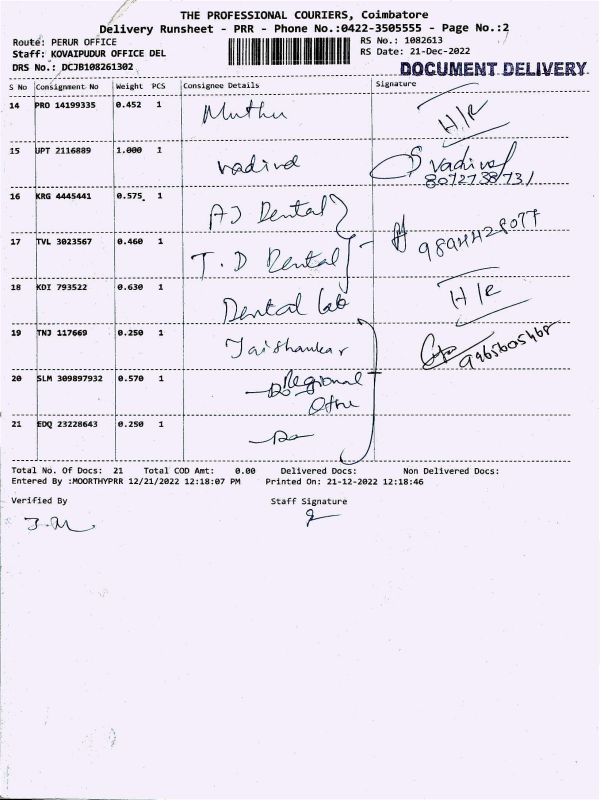 THE PROFESSIONAL COURIERS, Coimbatore
Delivery Runsheet - PRR - Phone No.:0422-3505555 - Page No.:2
Route: PERUR OFFICE
Staff: KOVAIPUDUR OFFICE DEL
DRS No.: DCJB108261302
RS No.: 1082613
RS Date: 21-Dec-2022
DOCUMENT DELIVERY
S No Consignment No Weight PCS Consignee Details Signature
14 PRO 14199335 0.452 1 Muthu H/R
15 UPT 2116889 1.000 1 vadivel Vadivel
8072738731
16 KRG 4445441 0.575 1 AJ Dental
17 TVL 3023567 0.460 1 T.D Dental 9894428077
18 KDI 793522 0.630 1 Dental Lab H/R
19 TNJ 117669 0.250 1 Jaishankar 9965605468
20 SLM 309897932 0.570 1 Regional
21 EDQ 23228643 0.250 1
Total No. Of Docs: 21 Total COD Amt: 0.00 Delivered Docs: Non Delivered Docs:
Entered By :MOORTHYPRR 12/21/2022 12:18:07 PM Printed On: 21-12-2022 12:18:46
Verified By Staff Signature